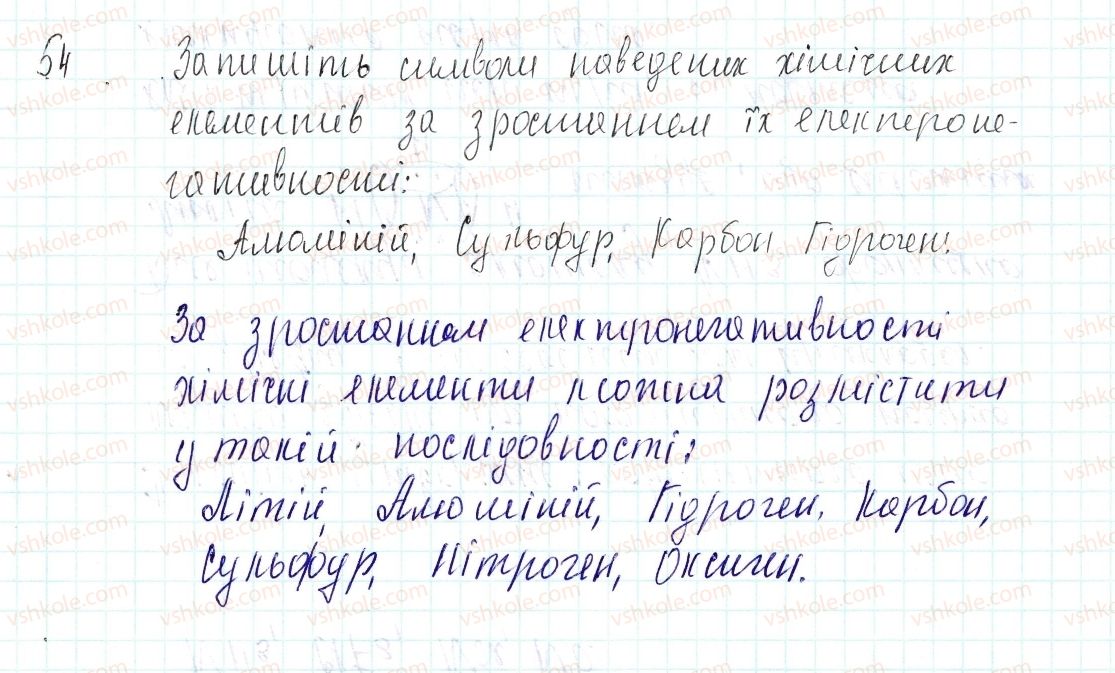 54 Запишіть символи наведених хімічних
елементів за зростанням їх електроне-
гативності:
Алюміній, Сульфур, Карбон, Гідроген.
За зростанням електронегативності
хімічні елементи можна розмістити
у такій послідовності:
Літій, Алюміній, Гідроген, Карбон,
Сульфур, Нітроген, Оксиген.